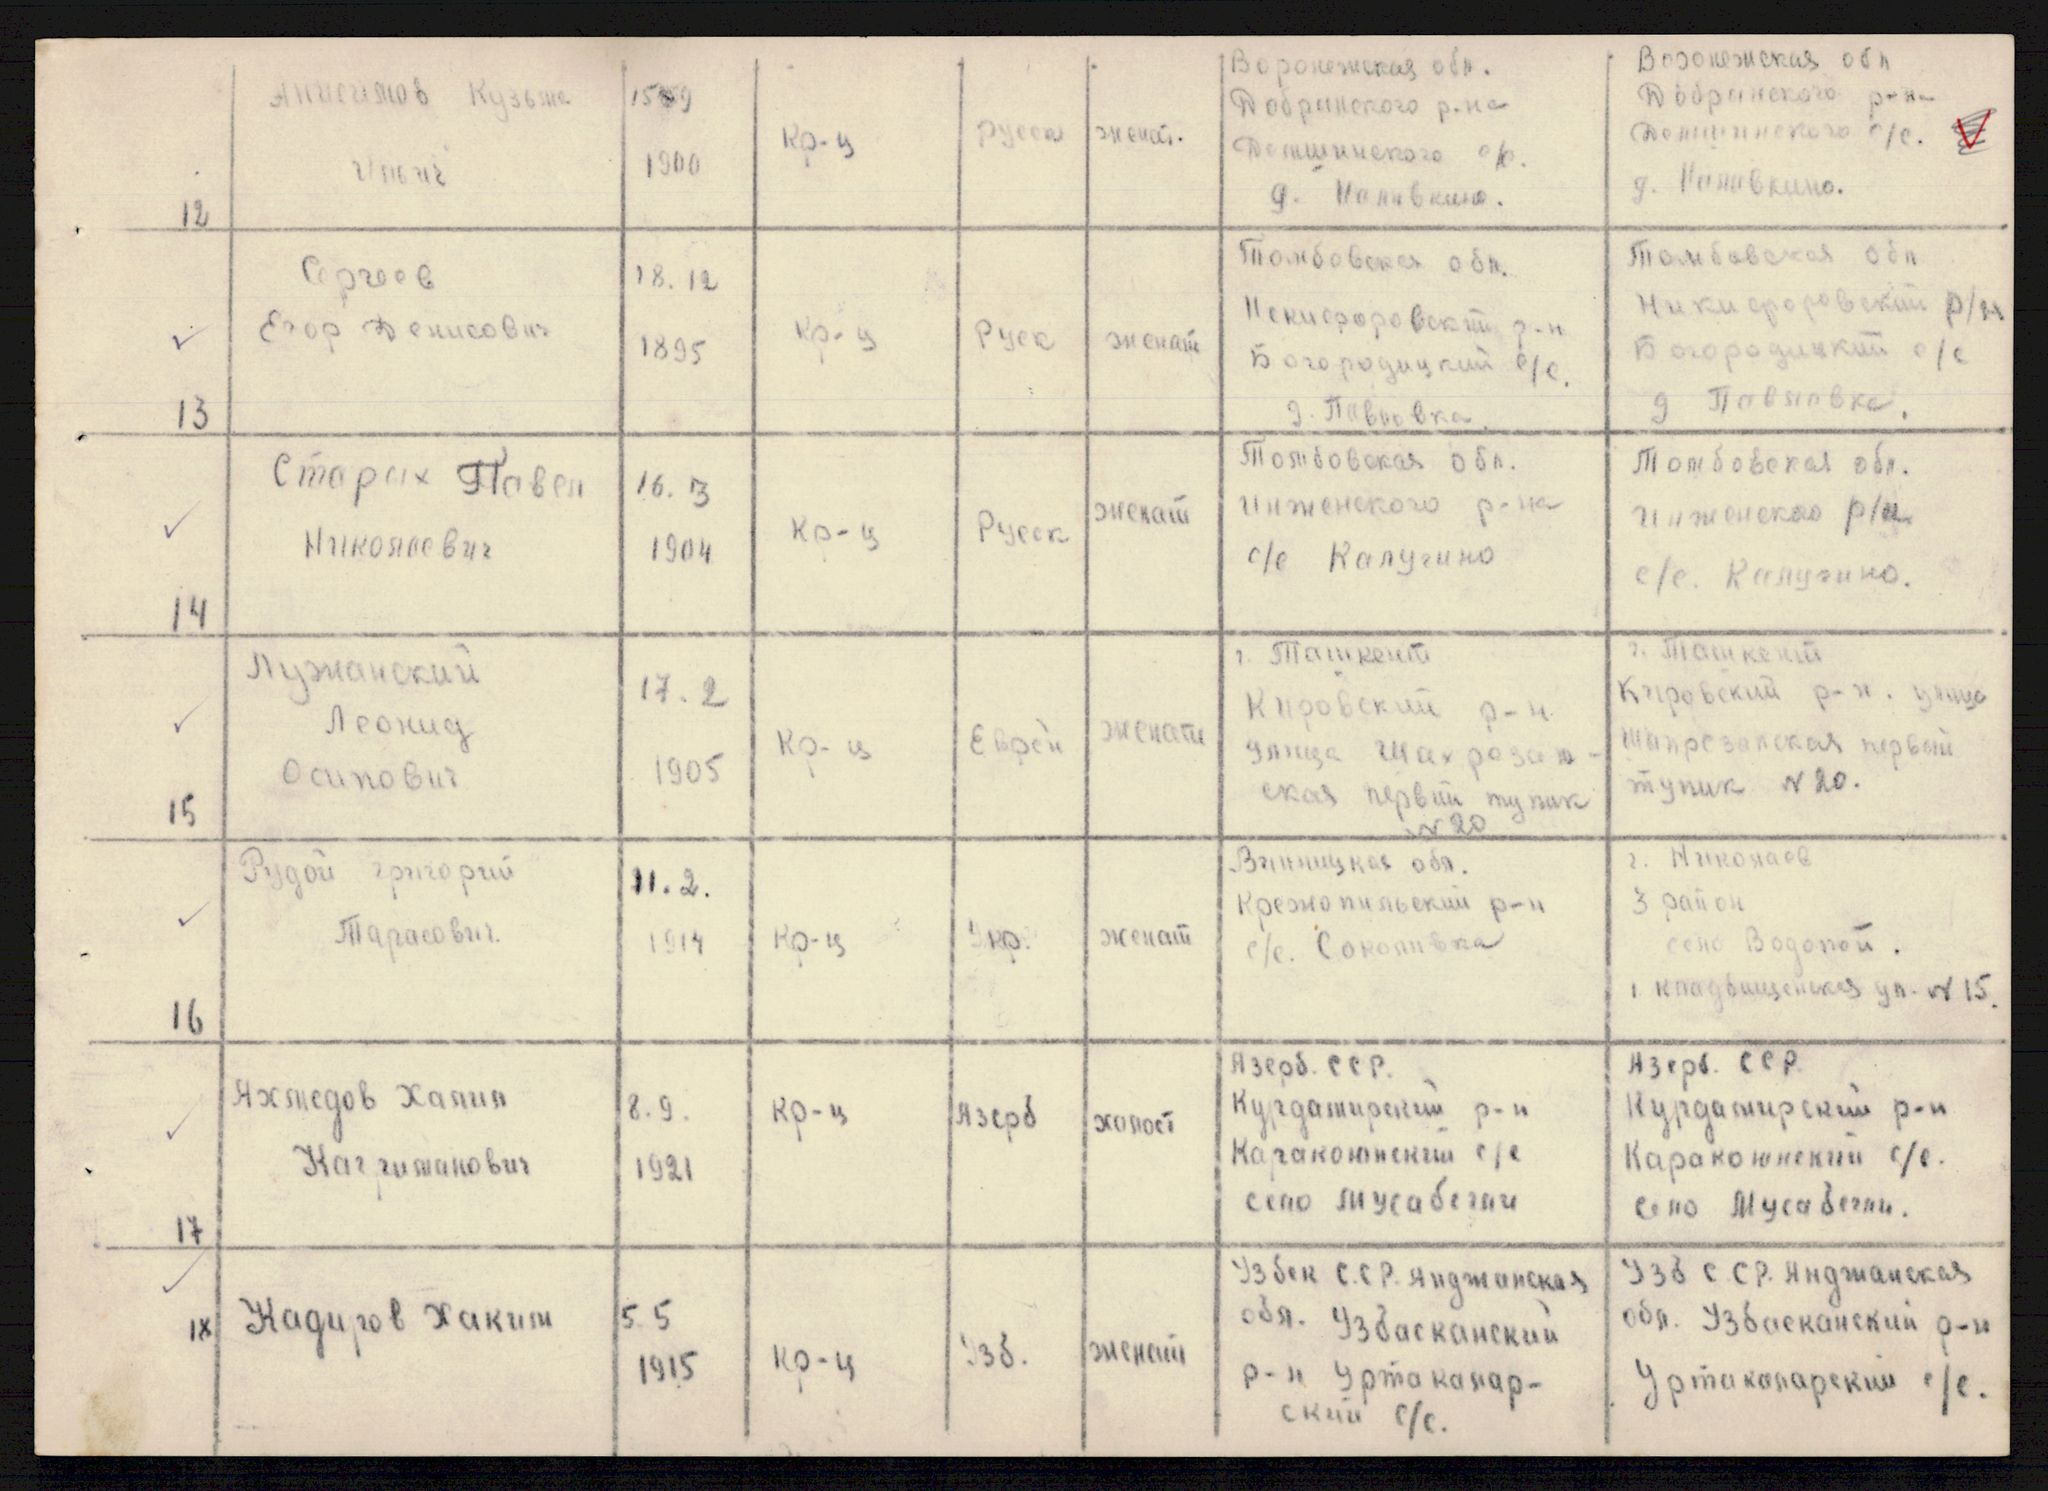 Анисимов Кузьма
Ильич
12
1900
Кр-ц
Русск
женат.
Воронежская обл.
Добринского р-на
Демшинского с/с.
д. Наливкино.
Воронежская обл
Добринского р-на
Демшинского с/с.
д. Наливкино.
Сергеев
Егор Денисович
13
18.12
1895
Кр-ц
Руск
женат
Томбовская обл.
Некифоровский р-н
Богородицкий с/с.
д. Павловка.
Томбовская обл
Никифоровский р/н
Богородицкий с/с
д Павловка.
Старых Павел
Николаевич
14
16.3
1904
Кр-ц
Русск
женат
Томбовская обл.
Инженского р-на
с/с Калугино
Томбовская обл.
Инженского р/н
с/с. Калугино.
Лужанский
Леонид
Осипович
15
17.2
1905
Кр-ц
Еврей
женат
г. Ташкент
Кировский р-н
улица
ская первий тупик
№20
г. Ташкент
Кировский р-н. улица
первый
тупик №20.
Рудой григорий
Тарасович.
16
11.2.
1914
Кр-ц
Укр.
женат
Винницкая обл.
Крежопильский р-н
с/с. Соколивка
г. Николаев
3 район
село Водопой.
1 кладвищенская ул. №15.
Ахмедов Халил
Кагриманович
17
8.9.
1921
Кр-ц
Азерб
холост
Азерб. ССР.
Курдамирский р-н
Каракоюнский с/с
село Мусабегли
Азерб. ССР.
Курдамирский р-н
Каракоюнский с/с.
село Мусабегли.
18
Кадиров Хаким
5.5
1915
Кр-ц
Узб.
женат
Узбек С.СР. Анджанская
обл. Узбасканский
р-н Уртакалар-
ский с/с.
Узб С.СР. Анджанская
обл. Узбасканский р-н
Уртакаларский с/с.